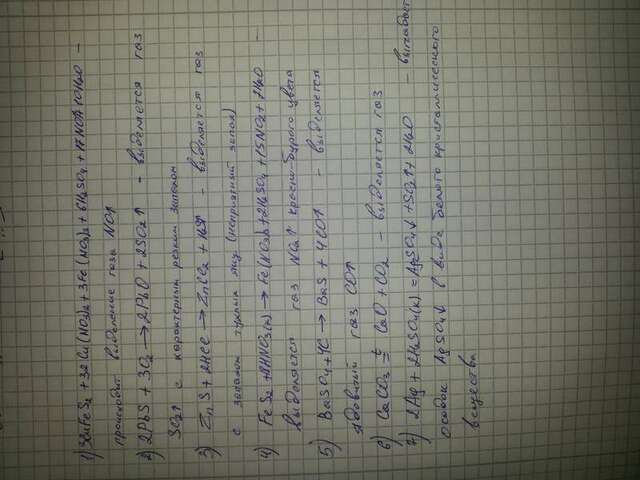 1) 3CuFeS2 + 32Cu(NO3)2 + 3Fe(NO3)2 + 6H2SO4 + 17NO↑ + 10H2O –
происходит выделение газа NO↑
2) 2PbS + 3O2 → 2PbO + 2SO2↑ - выделяется газ
SO2↑ с характерным резким запахом
3) ZnS + 2HCl → ZnCl2 + H2S↑ - выделяется газ
с запахом тухлых яиц (неприятный запах)
4) FeS2 + 18HNO3(к) → Fe(NO3)3 + 2H2SO4 + 15NO2 + 7H2O –
выделяется газ NO2↑ красно-бурого цвета
5) BaSO4 + 4C → BaS + 4CO↑ - выделяется
ядовитый газ CO↑
6) CaCO3 =t CaO + CO2 - выделяется газ
7) 2Ag + 2H2SO4(к) = Ag2SO4↓ + SO2↑ + 2H2O - выпадает
осадок AgSO4↓ в виде белого кристаллического
вещества